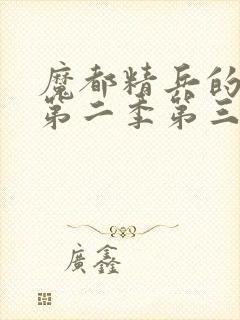 魔都精兵的
第二季第三
廣鑫